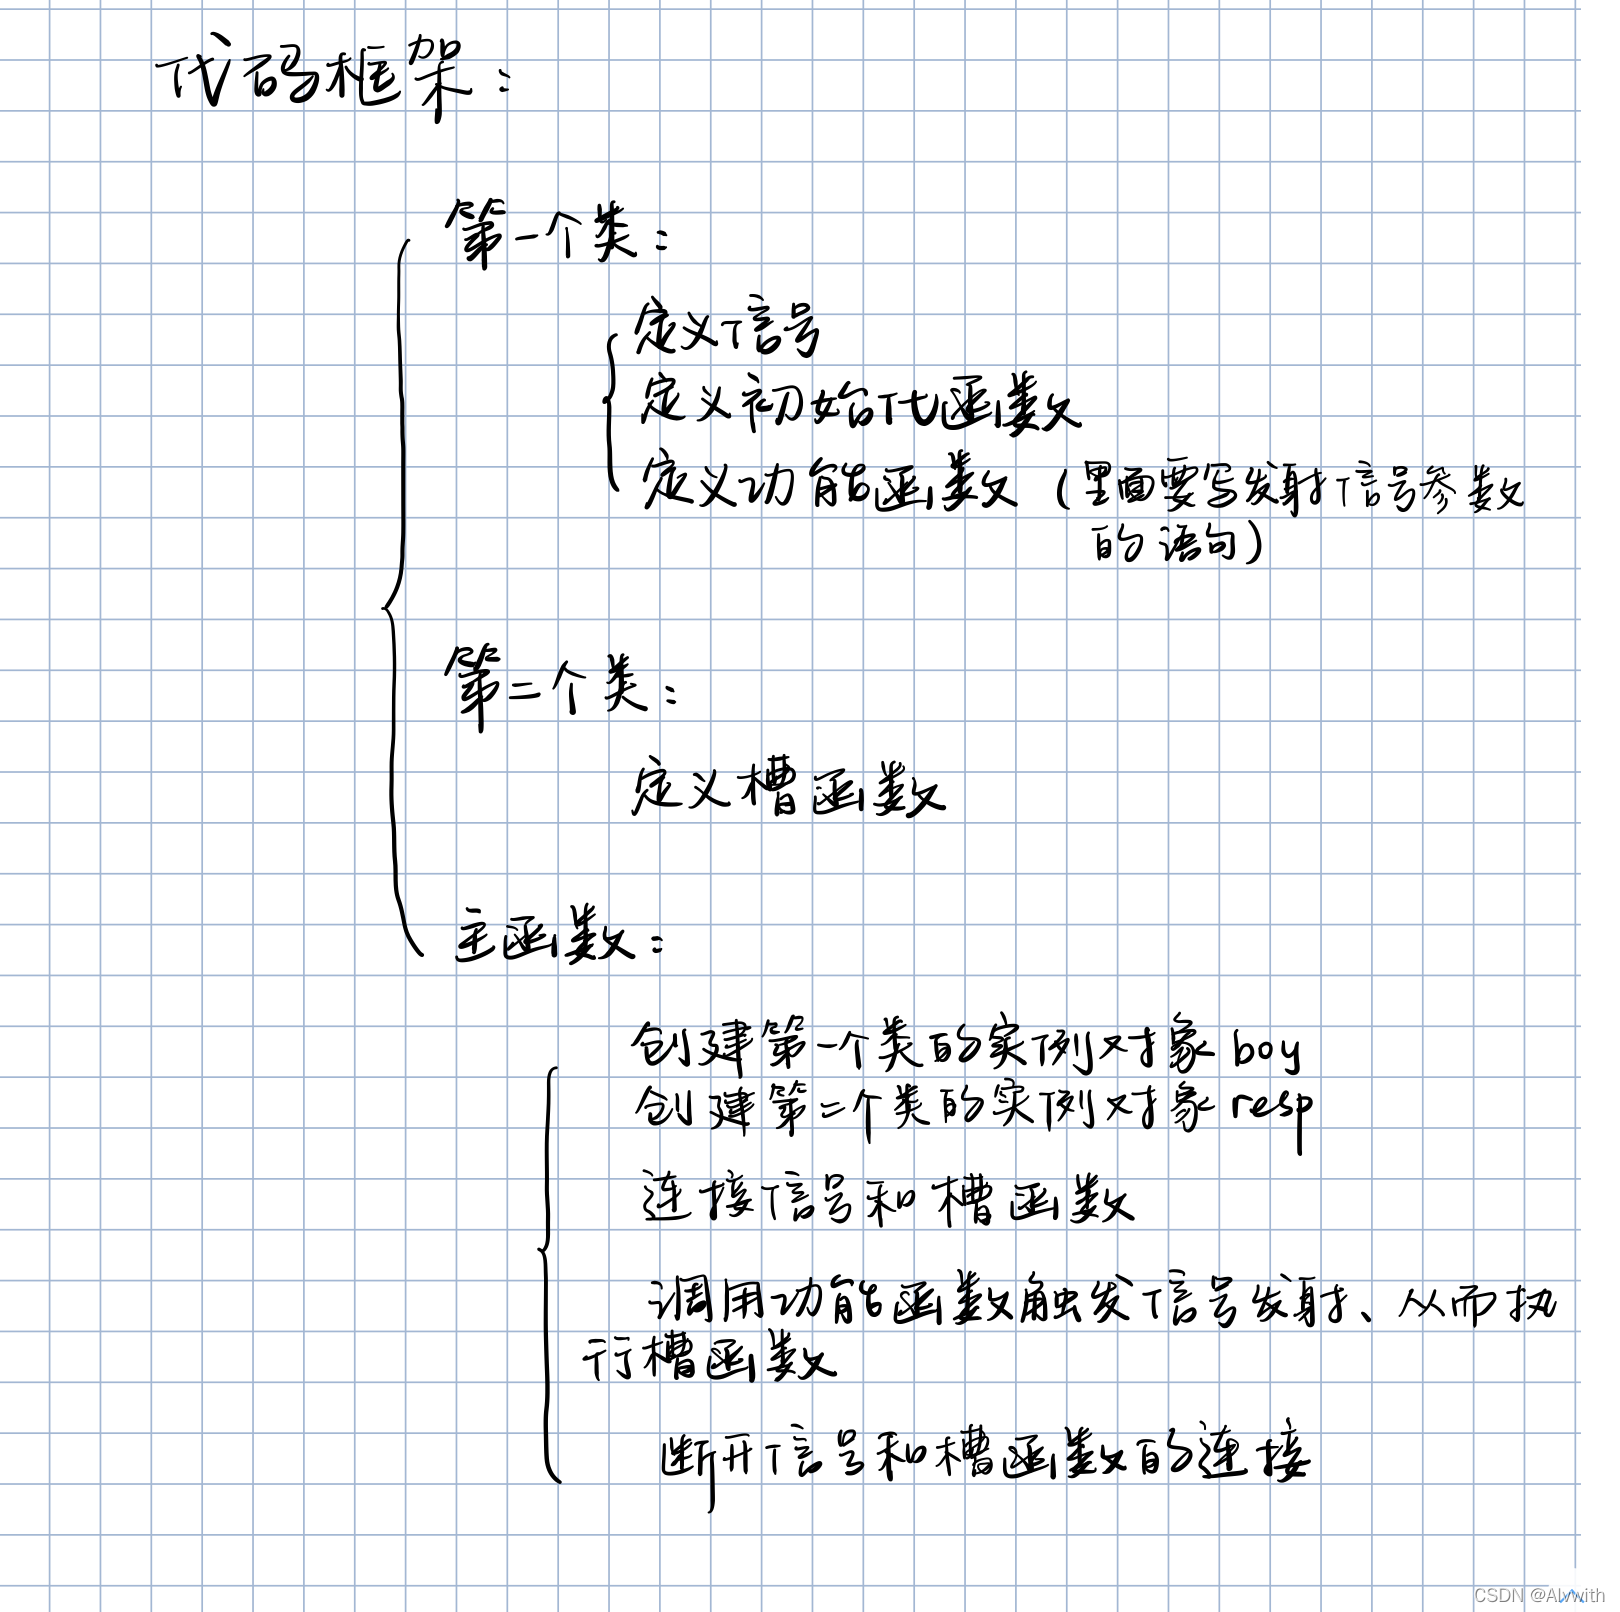 代码框架：
第一个类：
定义信号
定义初始代函数
定义功能函数（里面要写发射信号参数
的语句）
第二个类：
定义槽函数
主函数：
创建第一个类的实例对象 boy
创建第二个类的实例对象 resp
连接信号和槽函数
调用功能函数触发信号发射、从而执
行槽函数
断开信号和槽函数的连接
CSDN @Alvwith